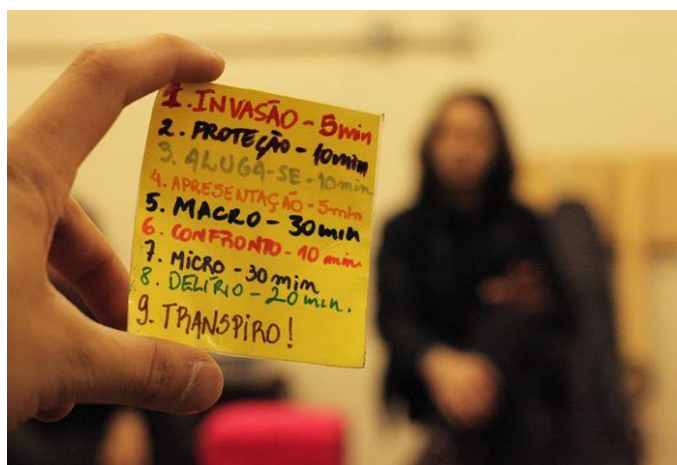 1. INVASÃO - 5min
2. PROTEÇÃO - 10min
3. ALUGA-SE - 10min
4. APRESENTAÇÃO - 5min
5. MACRO - 30min
6. CONFRONTO - 10 min.
7. MICRO - 30 min
8. DELÍRIO - 20 min.
9. TRANSPIRO!